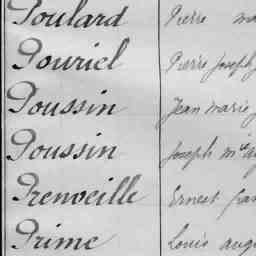 Poulard Pierre ma
Pouriel Pierre Joseph
Poussin Jean Marie J
Poussin Joseph Mie au
Prenveille Ernest fran
Prime Louis augu